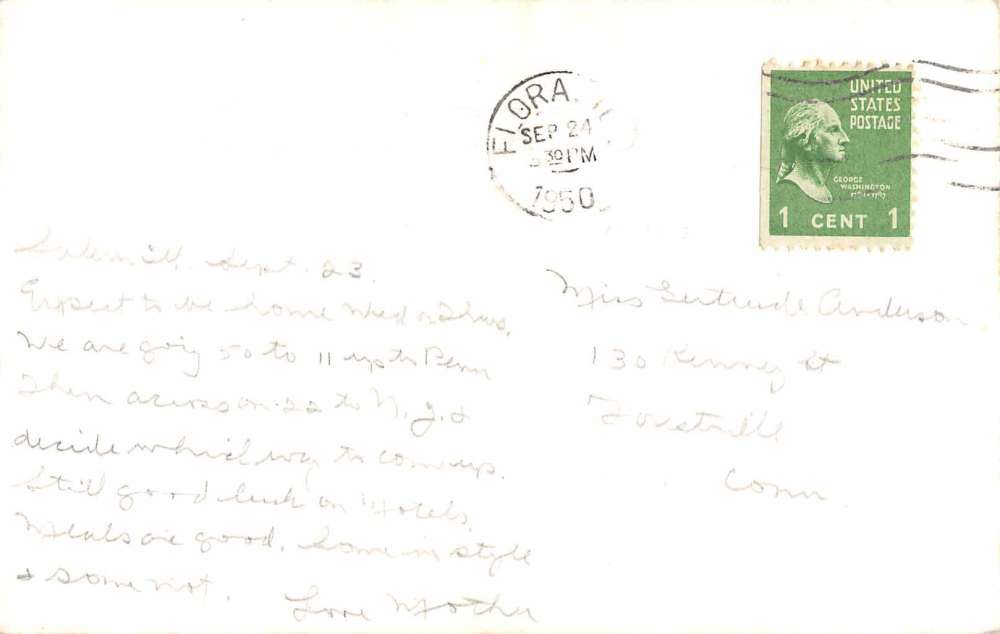 FLORA, ILL.
SEP 24
30 PM
1950
UNITED
STATES
POSTAGE
GEORGE
WASHINGTON
1 CENT 1
Salem Ill. Sept. 23.
Expect to be home Wed or Thurs.
We are going 50 to 11 up to Penn
Then across on 22 to N. J. &
decide which way to come up.
Still good luck on Hotels.
Meals are good. Some in style
& some not.
Love Mother
Miss Gertrude Anderson
130 Kenney St
Conn